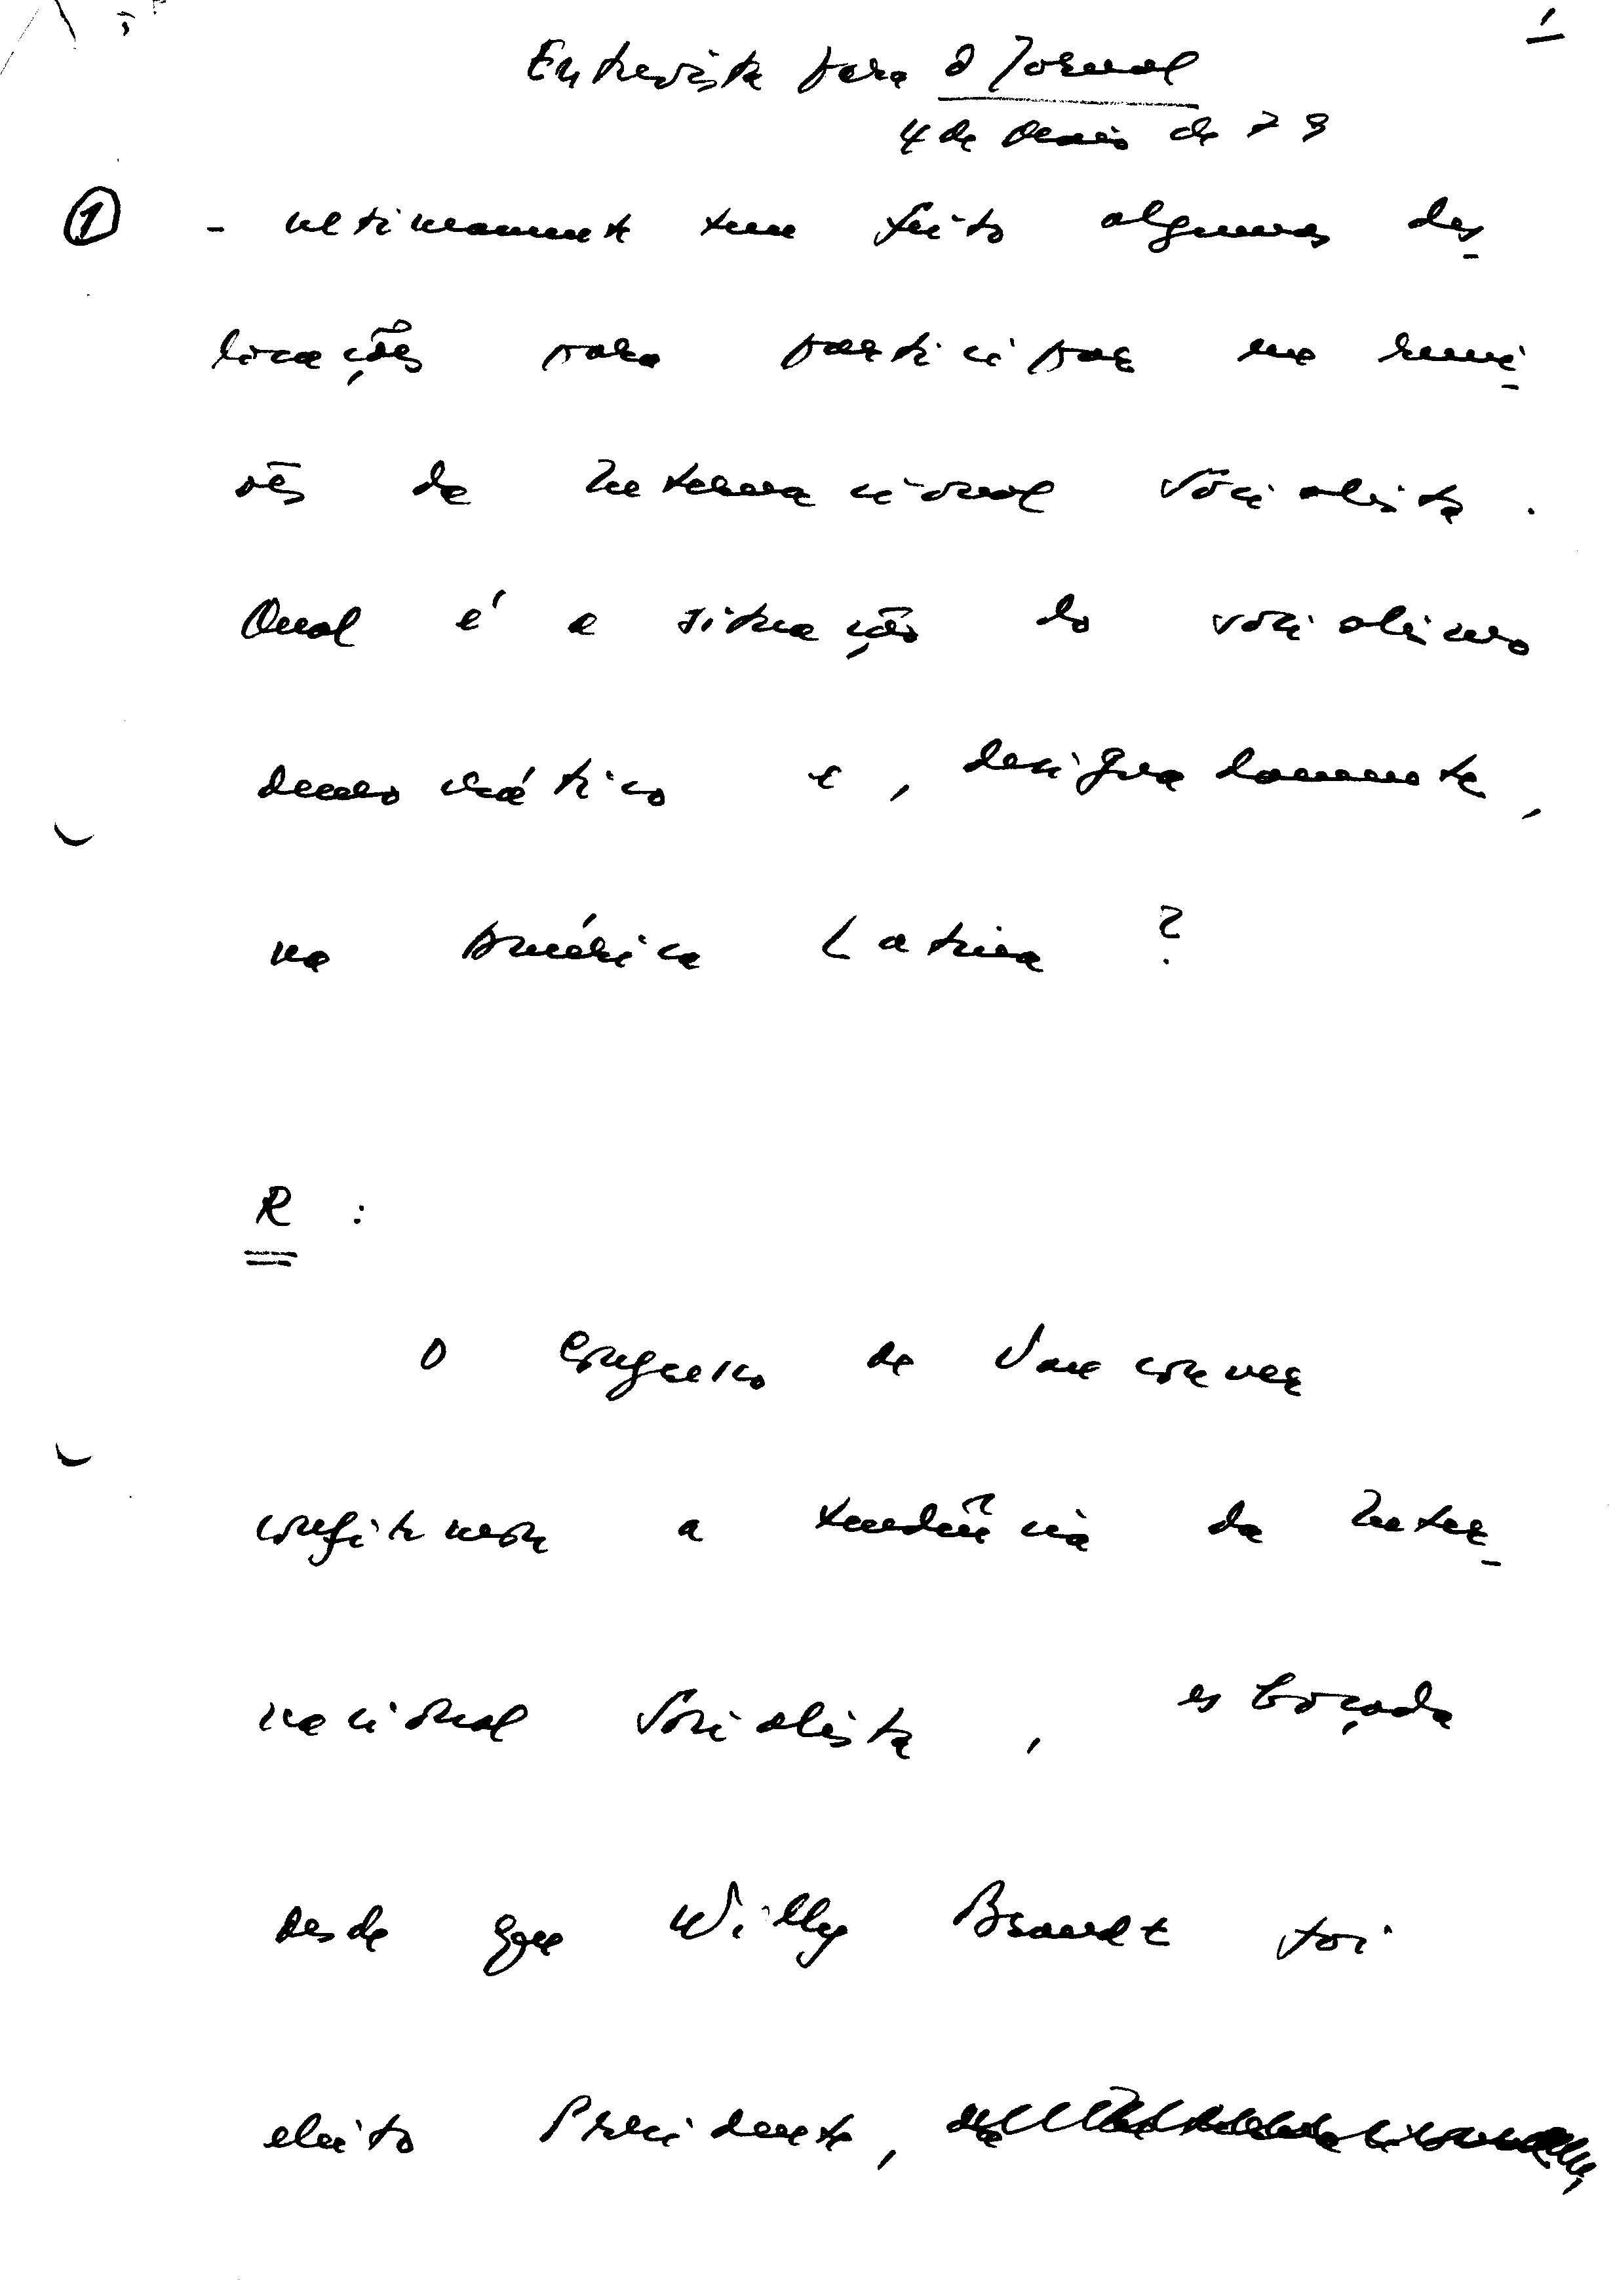 1
Entrevista para O Jornal
4 de Maio de 79
① - ultimamente tem feito algumas des-
locações para participar em reuni-
ões da Internacional Socialista.
Qual é a situação do socialismo
democrático e, designadamente,
na América Latina?
R:
O Congresso de Vancouver
confirmou a tendência da Inter-
nacional Socialista, esboçada
desde que Willy Brandt foi
eleito Presidente,